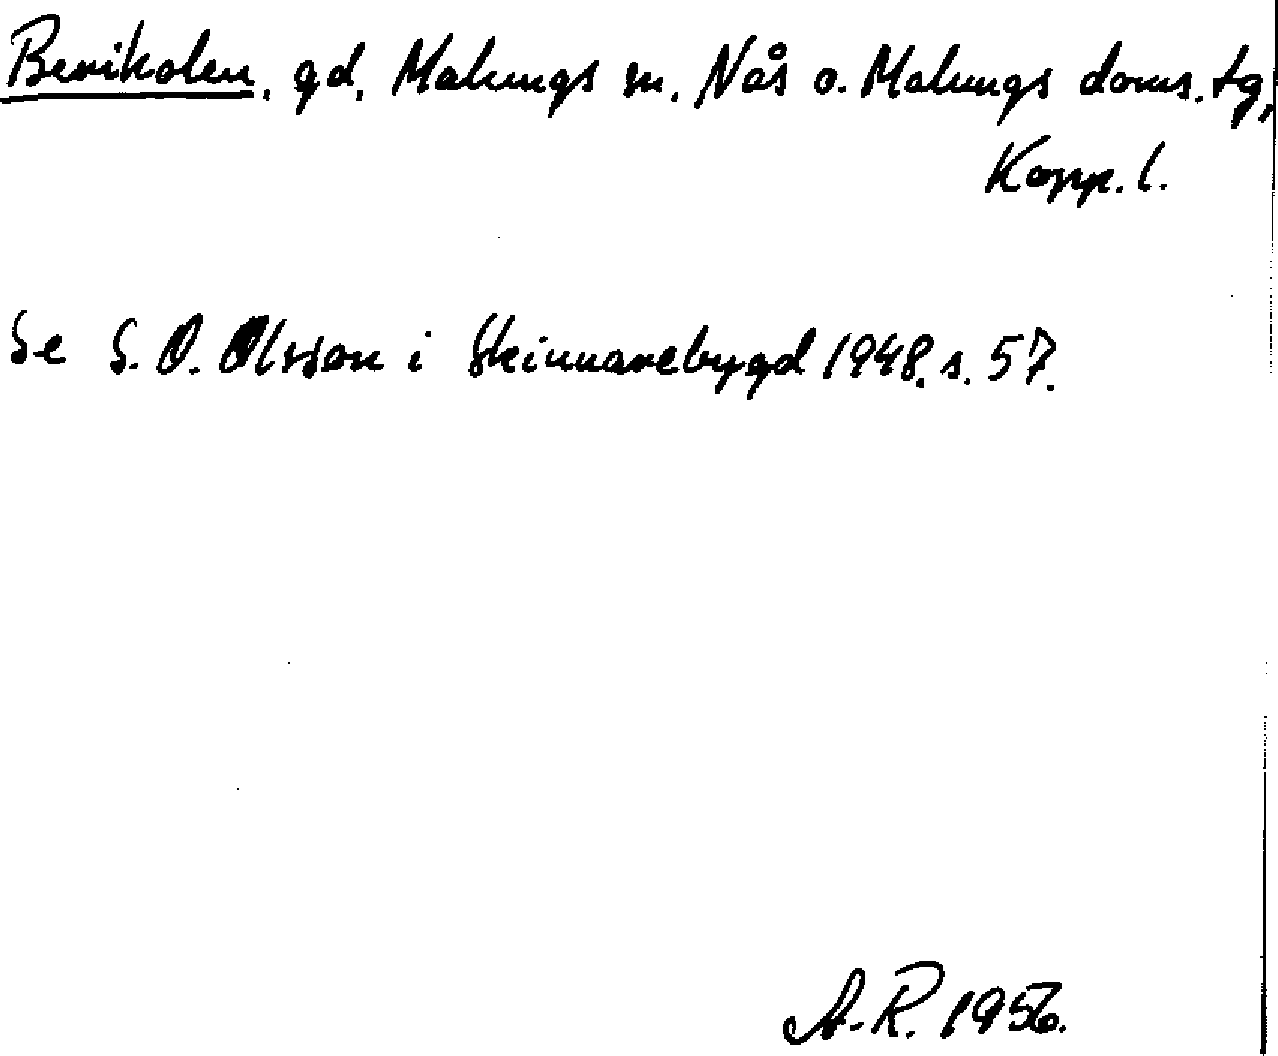 Benikolen, gd, Malungs sn. Nås o. Malungs doms. tg,
Kopp. l.
Se S. O. Olsson i Skinnarebygd 1948. s. 57.
A. R. 1956.